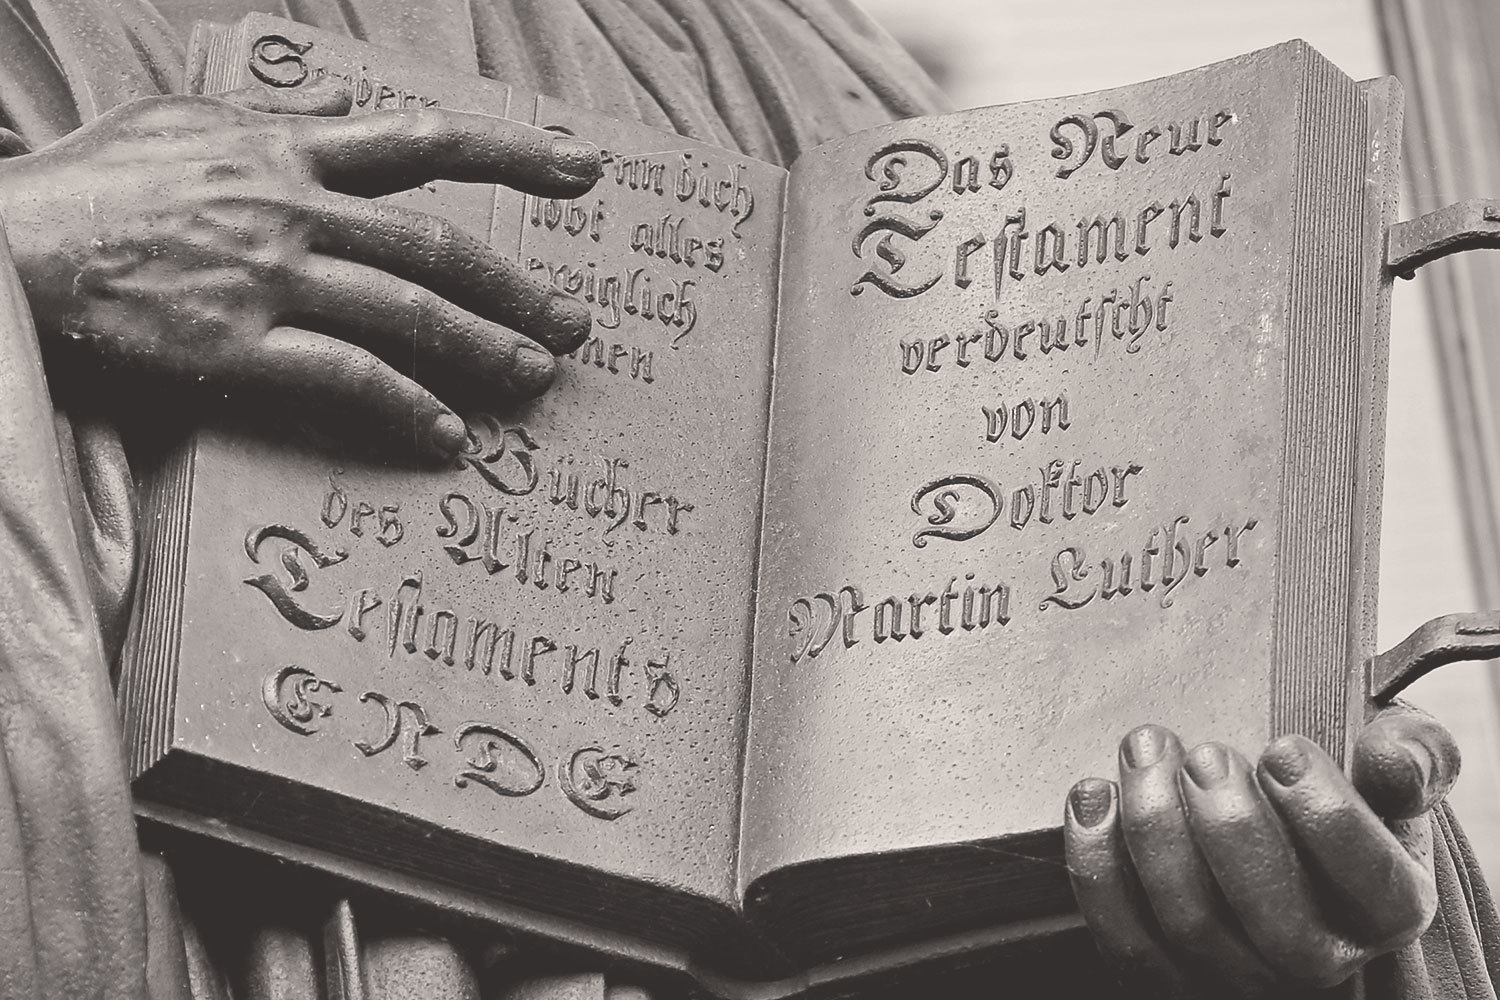 Sondern
dich
lobt alles
ewiglich
Bücher
des Alten
Testaments
ENDE
Das Neue
Testament
verdeutscht
von
Doktor
Martin Luther